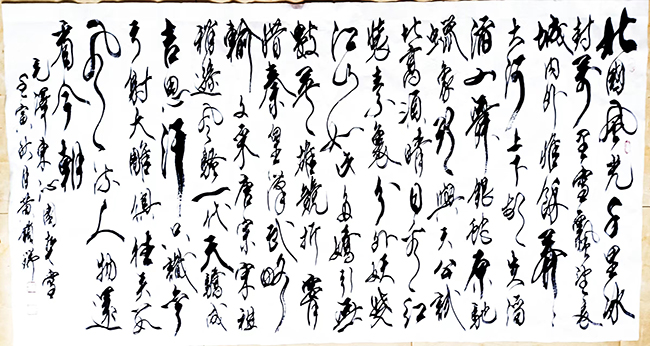 北國風光千里冰
封萬里雪飄望長
城内外惟餘莽々
大河上下頓失滔
滔山舞銀蛇原馳
蠟象欲與天公試
比高須晴日看紅
裝素裹分外妖嬈
江山如此多嬌引無
數英雄競折腰
惜秦皇漢武略
輸文采唐宗宋祖
稍遜風騷一代天驕成
吉思汗只識彎
弓射大雕俱往矣數
風流人物還
看今朝
毛澤東沁園春雪
壬寅